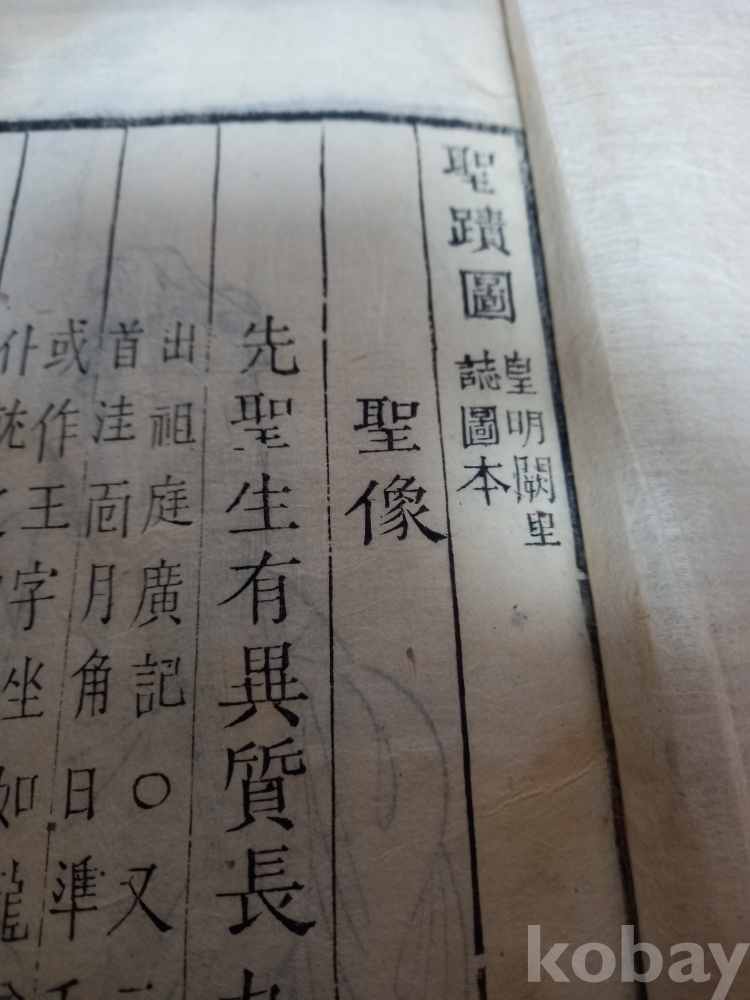 聖蹟圖
皇明闕里
誌圖本
聖像
先聖生有異質長
出祖庭廣記○又
首洼面月角日準
或作王字坐如龍
kobay